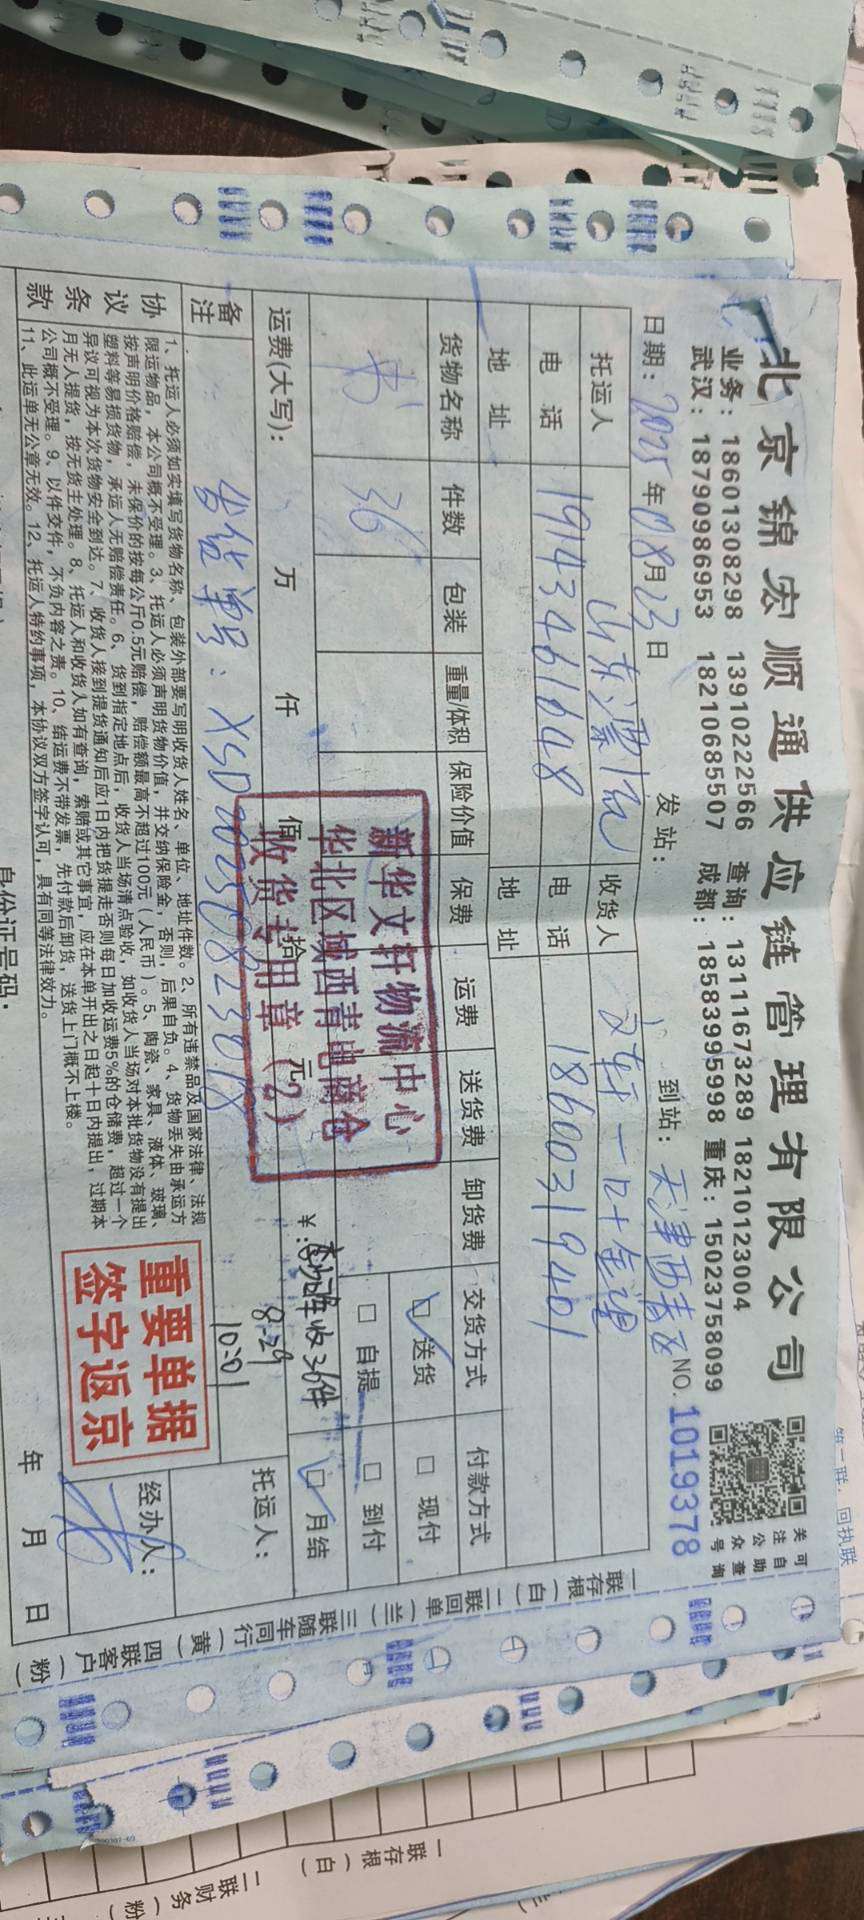 北京锦宏顺通供应链管理有限公司
业务：18601308298 13910222566 查询：13111673289 18210123004
武汉：18790986953 18210685507 成都：18583995998 重庆：15023758099
关注公众号
可自助查询
日期：2025年08月23日 发站： 到站：天津西青区 NO.1019378
托运人 山东 收货人 文轩一
电话 19143461648 电话 18600319401
地址 地址
货物名称 件数 包装 重量/体积 保险价值 保费 运费 送货费 卸货费 交货方式 付款方式
书 36 送货 现付
自提 到付
月结
运费(大写)： 万 仟 佰 拾 元 ¥：
收36件
8-29
10:01
新华文轩物流中心
华北区域西青电商仓
收货专用章（2）
备注
协议条款
1、托运人必须如实填写货物名称、包装外部要写明收货人姓名、单位、地址件数。2、所有违禁品及国家法律、法规
限运物品，本公司概不受理。3、托运人必须声明货物价值，并交纳保险金，否则，后果自负。4、货物丢失由承运方
按声明价格赔偿，未保价的按每公斤0.5元赔偿，赔偿额最高不超过100元（人民币）。5、陶瓷、家具、液体、玻璃、
塑料等易损货物，承运人无赔偿责任。6、货到指定地点后，收货人当场清点验收，如收货人当场对本批货物没有提出
异议可视为本次货物安全到达。7、收货人接到提货通知后应1日内把货提走否则每日加收运费5%的仓储费，超过一个
月无人提货，按无货主处理。8、托运人和收货人如有查询，索赔或其它事宜，应在本单开出之日起十日内提出，过期本
公司概不受理。9、以件交件，不负内容之责。10、结运费不带发票，先付款后卸货，送货上门概不上楼。
11、此运单无公章无效。12、托运人特约事项，本协议双方签字认可，具有同等法律效力。
重要单据
签字返京
托运人：
经办人：
年 月 日
一联存根（白）二联回单（兰）三联随车同行（黄）四联客户（粉）
身份证号码：
第二联，回执联
一联存根（白）
二联财务（粉